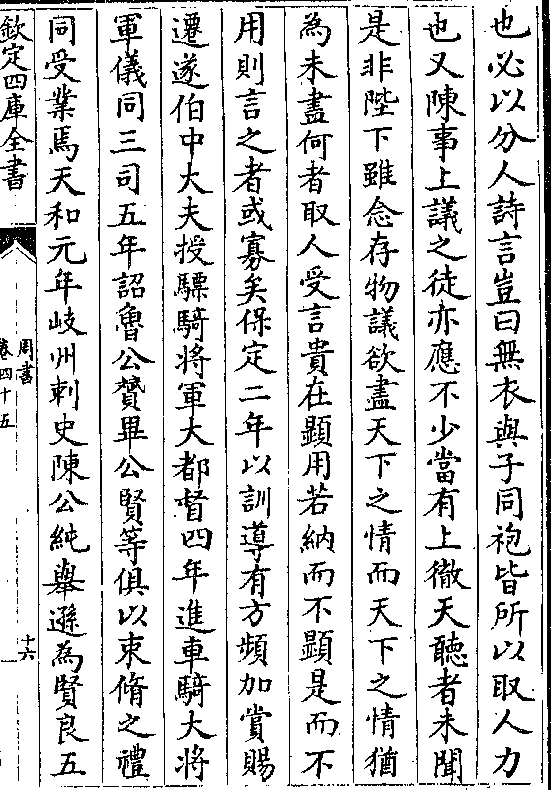 也必以分人詩言豈曰無衣與子同袍皆所以取人力
也又陳事上議之徒亦應不少當有上徹天聽者未聞
是非陛下雖念存物議欲盡天下之情而天下之情猶
為未盡何者取人受言貴在顯用若納而不顯是而不
用則言之者或寡矣保定二年以訓導有方頻加賞賜
遷遂伯中大夫授驃騎將軍大都督四年進車騎大將
軍儀同三司五年詔魯公贇畢公賢等俱以束脩之禮
同受業焉天和元年岐州刺史陳公純舉遜為賢良五
欽定四庫全書
周書
卷四十五
十六